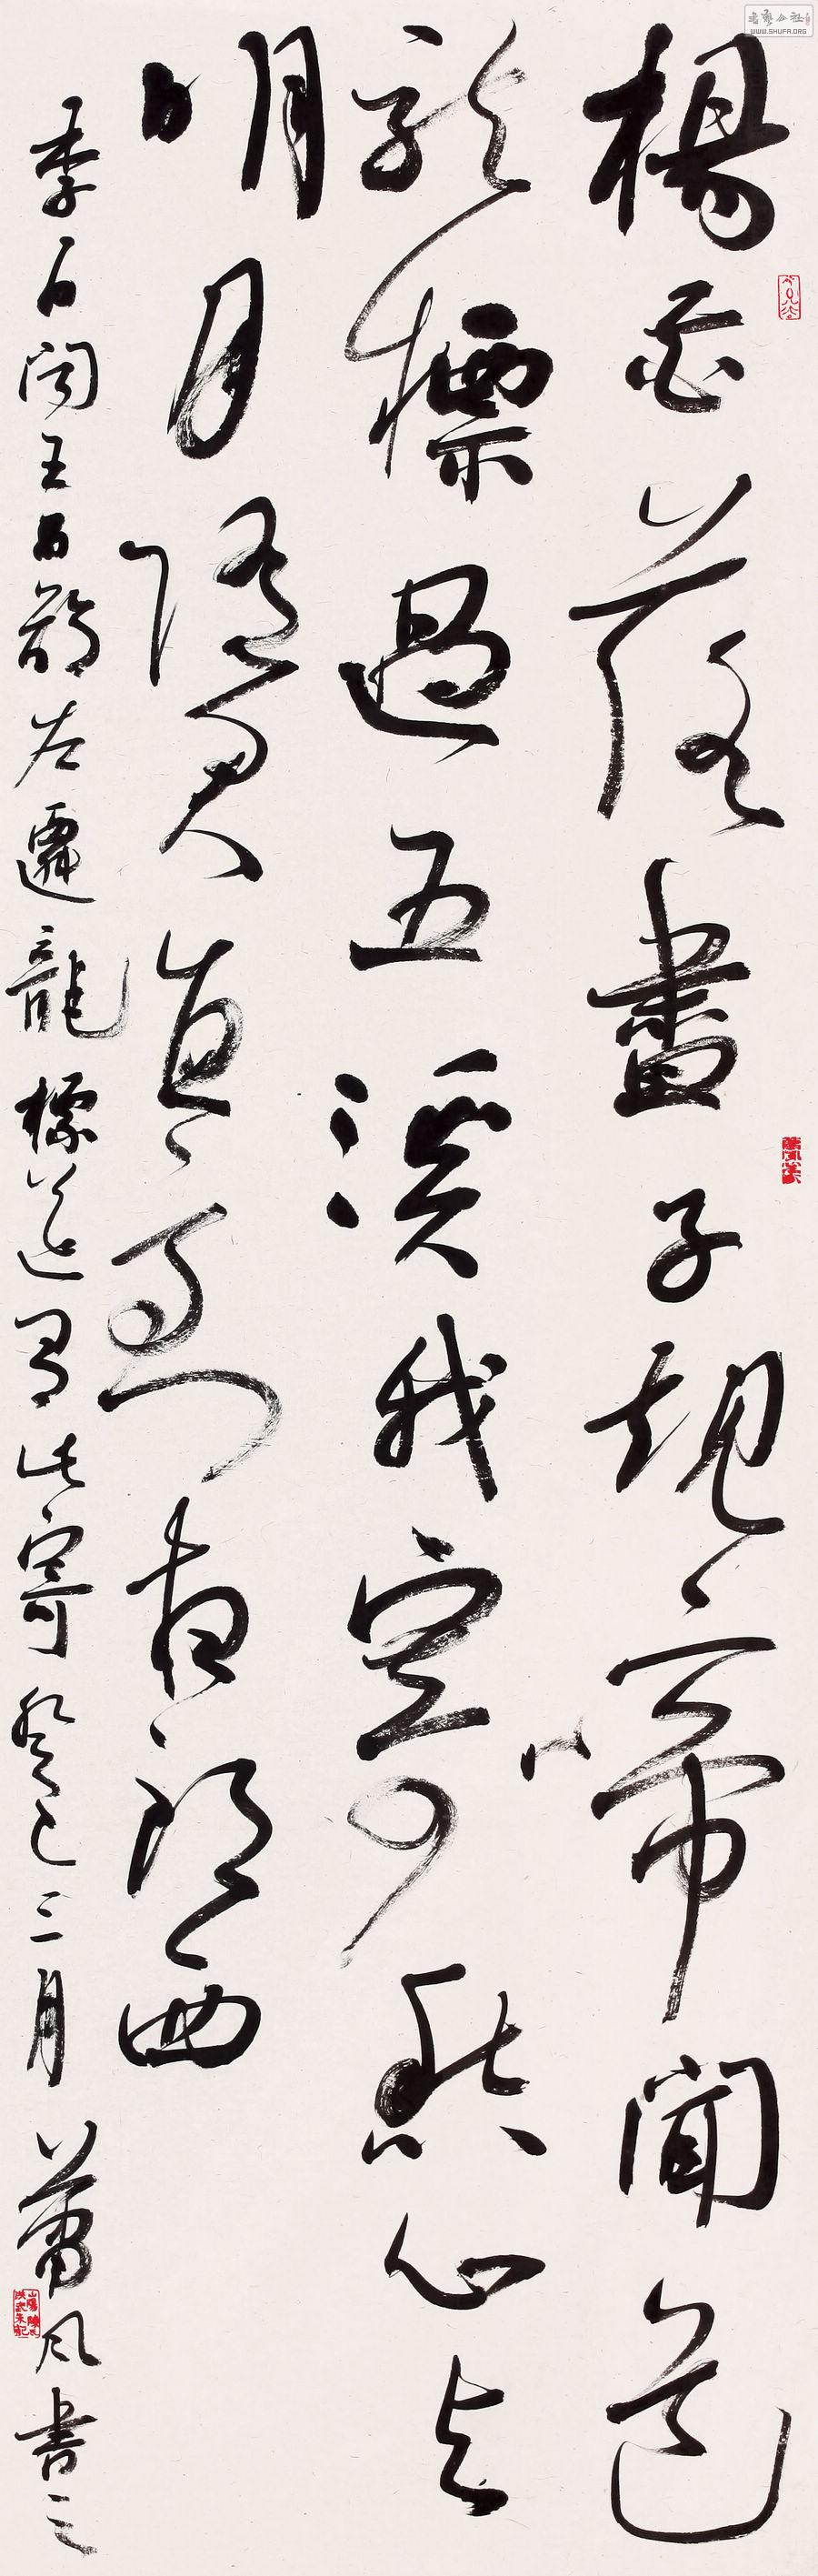 楊花落盡子規啼聞道
龍標過五溪我寄愁心与
明月隨君直到夜郎西
李白聞王昌齡左遷龍標遥有此寄癸巳三月蕭風書之
WWW.SHUFA.ORG